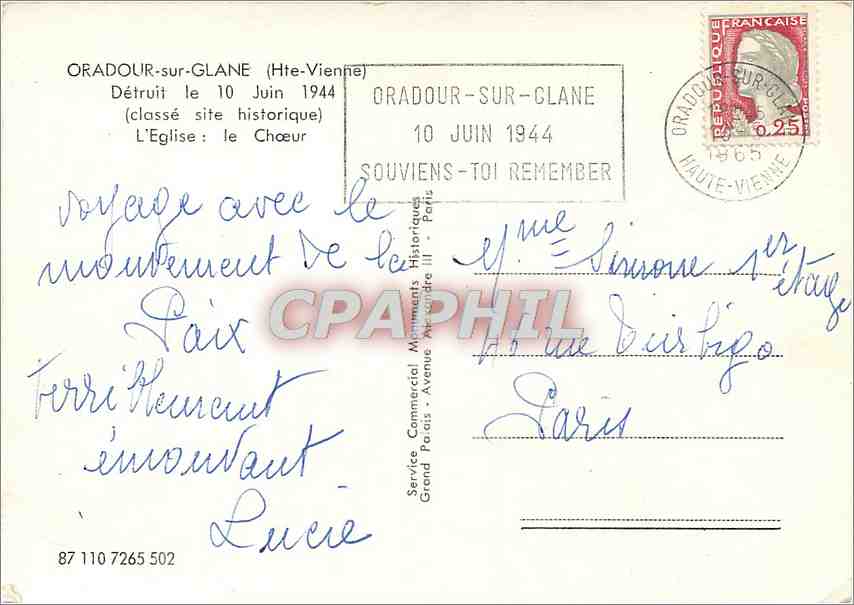 ORADOUR-sur-GLANE (Hte-Vienne)
Détruit le 10 Juin 1944
(classé site historique)
L'Eglise : le Chœur
ORADOUR-SUR-GLANE
10 JUIN 1944
SOUVIENS-TOI REMEMBER
REPUBLIQUE FRANCAISE
POSTES
0,25
ORADOUR-SUR-GLANE
1965
HAUTE-VIENNE
voyage avec le
mouvement de la
Paix
terriblement
émouvant
Lucie
Service Commercial Monuments Historiques
Grand Palais - Avenue Alexandre III - Paris
Mme Simone 1er
étage
rue Turbigo
Paris
CPAPHIL
87 110 7265 502